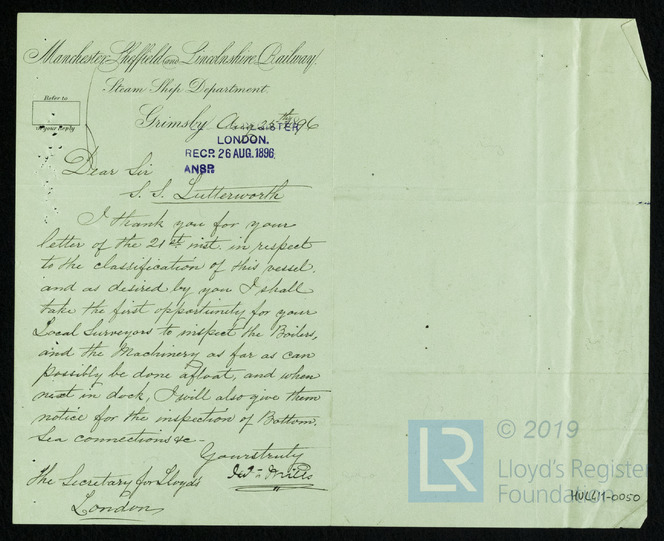 Manchester, Sheffield and Lincolnshire Railway.
Steam Ship Department.
Refer to
in your reply
Grimsby Aug 25th 1896
LONDON.
RECD. 26 AUG. 1896
ANSD.
Dear Sir
S. S. Lutterworth
I thank you for your
letter of the 21st inst. in respect
to the classification of this vessel.
and as desired by you I shall
take the first opportunity for your
Local Surveyors to inspect the Boilers,
and the Machinery as far as can
possibly be done afloat, and when
next in dock, I will also give them
notice for the inspection of Bottom.
Sea connections &c -
Yourstruly
The Secretary for Lloyds
London
© 2019
LR
Lloyd's Register
Foundation
HULL11-0050